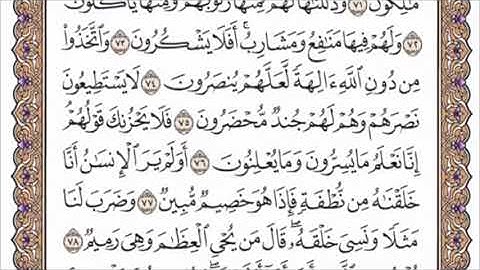 مَٰلِكُونَ ٧١ وَذَلَّلْنَٰهَا لَهُمْ فَمِنْهَا رَكُوبُهُمْ وَمِنْهَا يَأْكُلُونَ
٧٢ وَلَهُمْ فِيهَا مَنَٰفِعُ وَمَشَارِبُ ۚ أَفَلَا يَشْكُرُونَ ٧٣ وَٱتَّخَذُوا۟
مِن دُونِ ٱللَّهِ ءَالِهَةً لَّعَلَّهُمْ يُنصَرُونَ ٧٤ لَا يَسْتَطِيعُونَ
نَصْرَهُمْ وَهُمْ لَهُمْ جُندٌ مُّحْضَرُونَ ٧٥ فَلَا يَحْزُنكَ قَوْلُهُمْ ۘ
إِنَّا نَعْلَمُ مَا يُسِرُّونَ وَمَا يُعْلِنُونَ ٧٦ أَوَلَمْ يَرَ ٱلْإِنسَٰنُ أَنَّا
خَلَقْنَٰهُ مِن نُّطْفَةٍ فَإِذَا هُوَ خَصِيمٌ مُّبِينٌ ٧٧ وَضَرَبَ لَنَا
مَثَلًا وَنَسِىَ خَلْقَهُۥ ۖ قَالَ مَن يُحْىِ ٱلْعِظَٰمَ وَهِىَ رَمِيمٌ ٧٨